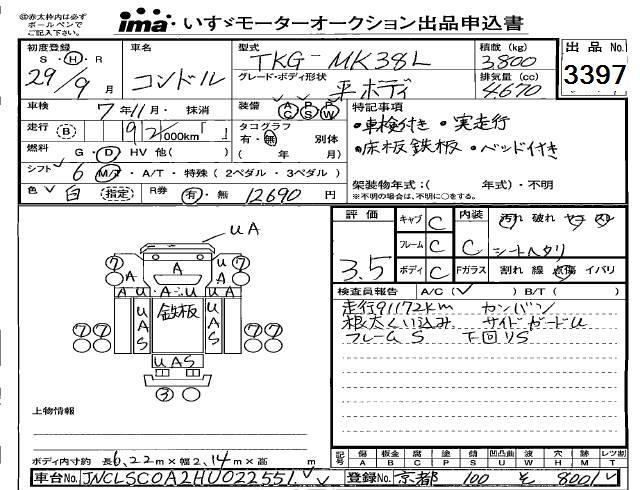 ◎赤太枠内は必ず
ボールペンで
ご記入下さい。
ima いすゞモーターオークション出品申込書
初度登録 車名 型式 積載 (kg) 出品 No.
S・H・R コンドル TKG-MK38L 3800 3397
29/9 月 グレード・ボディ形状 平ボディ 排気量 (cc) 4670
車検 7 年 11 月・ 抹消 装備 AC PS PW 特記事項
走行 B 92,000km「 」 タコグラフ ・車検付き ・実走行
有・無 別体 ・床板鉄板 ・ベッド付き
燃料 G・D HV 他( ) ( 年 月)
シフト 6 M/T ・ A/T ・ 特殊 ( 2ペダル ・ 3ペダル ) 架装物年式:( 年式)・不明
色 白 指定 R券 有・無 12690 円 ※不明の場合は、不明に○をする。
評価 キャブ C 内装 汚れ 破れ ヤケ スレ
3.5 フレーム C C シートヘタリ
ボディ C Fガラス 割れ 線 点傷 イバリ
検査員報告 A/C ( ✓ ) B/T ( )
走行91172km カンバン
根太くい込み サイドガードU
フレームS 下回りS
UA
⑦ A UA ⑦
A
A U A U A
⑦⑦ UAS 鉄板 UAS ⑦⑦
UAS
③
上物情報
ボディ内寸約 長6,22m×幅2,14m×高 m
記号 傷 A 板金 B 腐 C 塗 P 錆 S 凹凸曲 U 波 W 穴 H 跡 M レツ割 T
車台No. JNCLSC0A2HU022551 登録No. 京都 100 を 8001